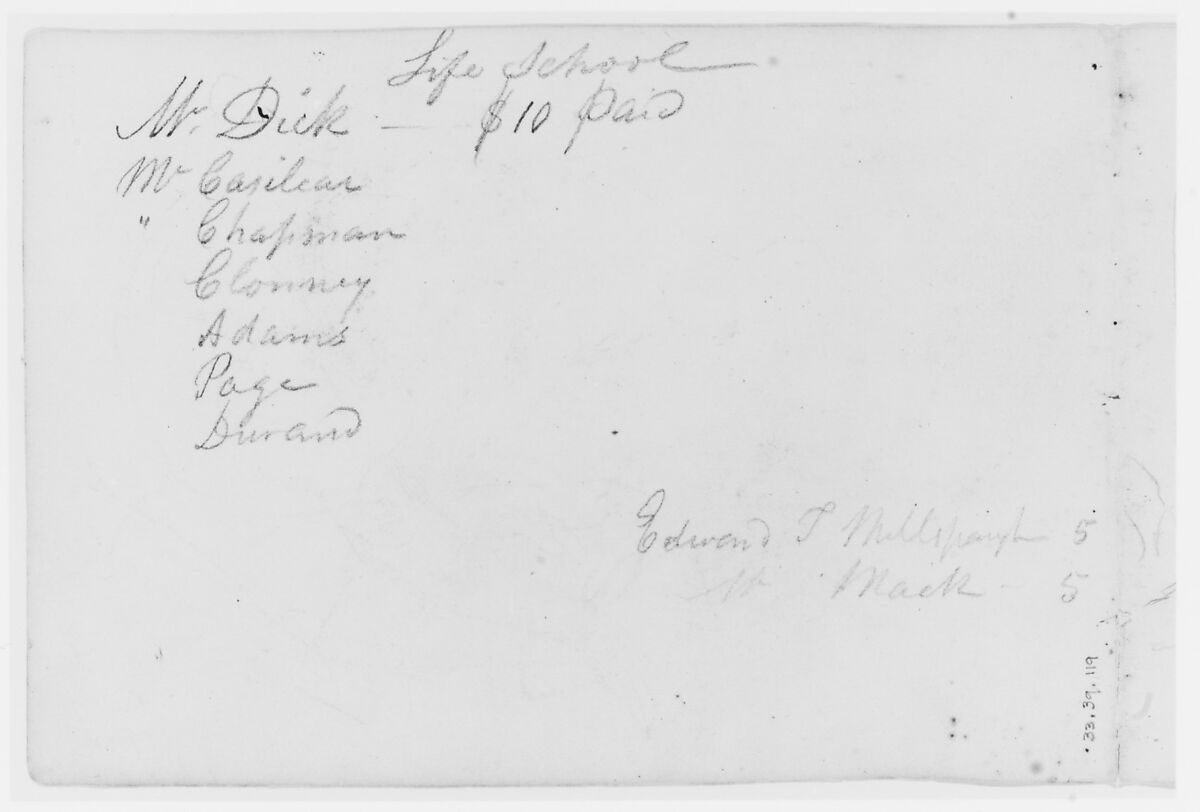 Life School
Mr. Dick — $10 Paid
Mr Casilear
" Chapman
Clonney
Adams
Page
Durand
Edward T Millspaugh 5
Mr Mack - 5
33.39.119